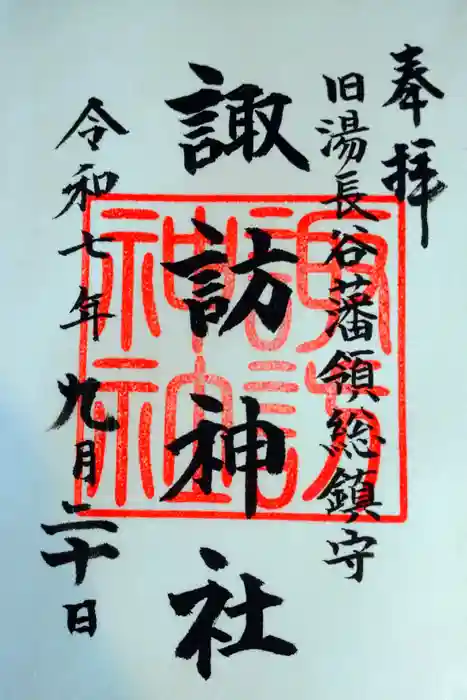 奉拝
旧湯長谷藩領総鎮守
諏訪神社
令和七年九月二十日
諏訪
神社